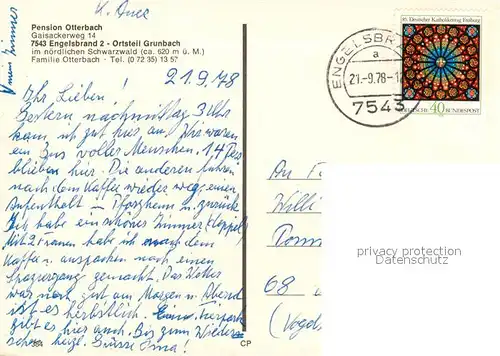 Pension Otterbach
Gaisackerweg 14
7543 Engelsbrand 2 - Ortsteil Grunbach
im nördlichen Schwarzwald (ca. 620 m ü. M.)
Familie Otterbach - Tel. (0 72 35) 13 57
21.9.78
Ihr Lieben!
Gestern nachmittag 3 Uhr
kam ich gut hier an. Wir waren
ein Bus voller Menschen. 14 Pers
blieben hier. Die anderen fuhren
nach dem Kaffee wieder weg, einen
Aufenthalt in Pforzheim u. zurück
Ich habe ein schönes Zimmer (Doppel)
Mit 2 Frauen habe ich nach dem
Kaffee u. auspacken noch einen
Spaziergang gemacht. Das Wetter
war noch gut, am Morgen u. Abend
ist es herbstlich. Eine Tierpark
gibt es hier auch. Bis zum Wieder-
sehen herzl. Grüsse Oma!
CP
85. Deutscher Katholikentag Freiburg
40
DEUTSCHE BUNDESPOST
ENGELSBRA
a
21.-9.78-1
7543
An F
Willi
68
(Vogel
privacy protection
Datenschutz